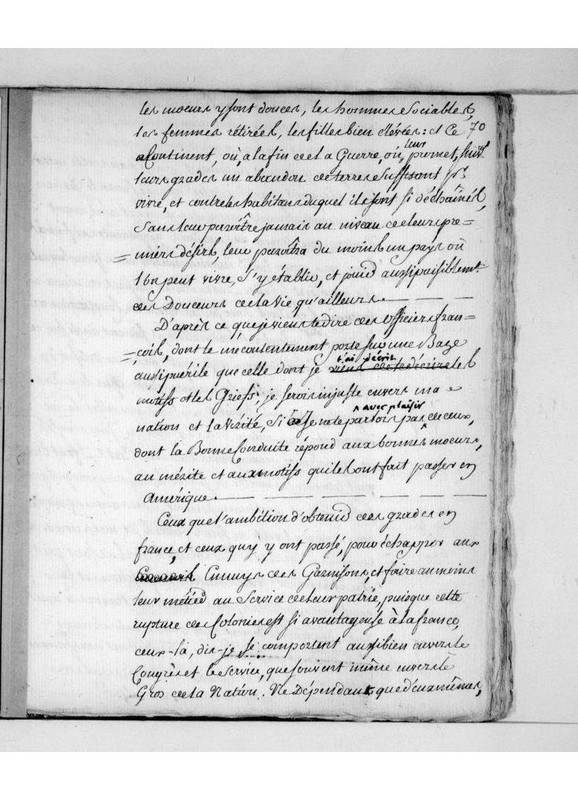 les moeurs y sont douces, les hommes Sociables,
les femmes rétirées, les filles bien élevées: et Ce 70
Continent, où, à la fin de la Guerre, où, leur promet, suivt
leurs grades un abandon de terre Suffisant pr.
vivre, et contre les habitans duquel ils se sont si déchainés,
Sans leur paroître jamais au niveau de leurs pre=
=miers désirs, leur paroîtra du moins un pays où
l'on peut vivre, s'y établir, et jouir aussi paisiblemt.
des Douceurs de la vie qu'ailleurs.
D'après ce que je viens de dire des officiers fran=
=çois, dont le mécontentement porte sur une Baze
aussi puérile que celle dont je t'ai décrit les
motifs et les Griefs, je serois injuste envers ma
nation et la vérité, Si je ne te parlois pas avec plaisir de ceux,
dont la Bonne Conduite répond aux bonnes moeurs,
au mérite et aux motifs qui les ont fait passer en
Amérique.
Ceux que l'ambition d'obtenir des grades en
france, et ceux qui y ont passé, pour échapper aux
Ennuys des Garnisons, et faire au moins
leur métier au Service de leur patrie, puisque cette
rupture des Colonies est si avantageuse à la france,
ceux-là, dis-je, se comportent aussi bien envers le
Congrès et le Service, que souvent même envers le
Gros de la Nation. Ne Dépendant que d'eux mêmes,